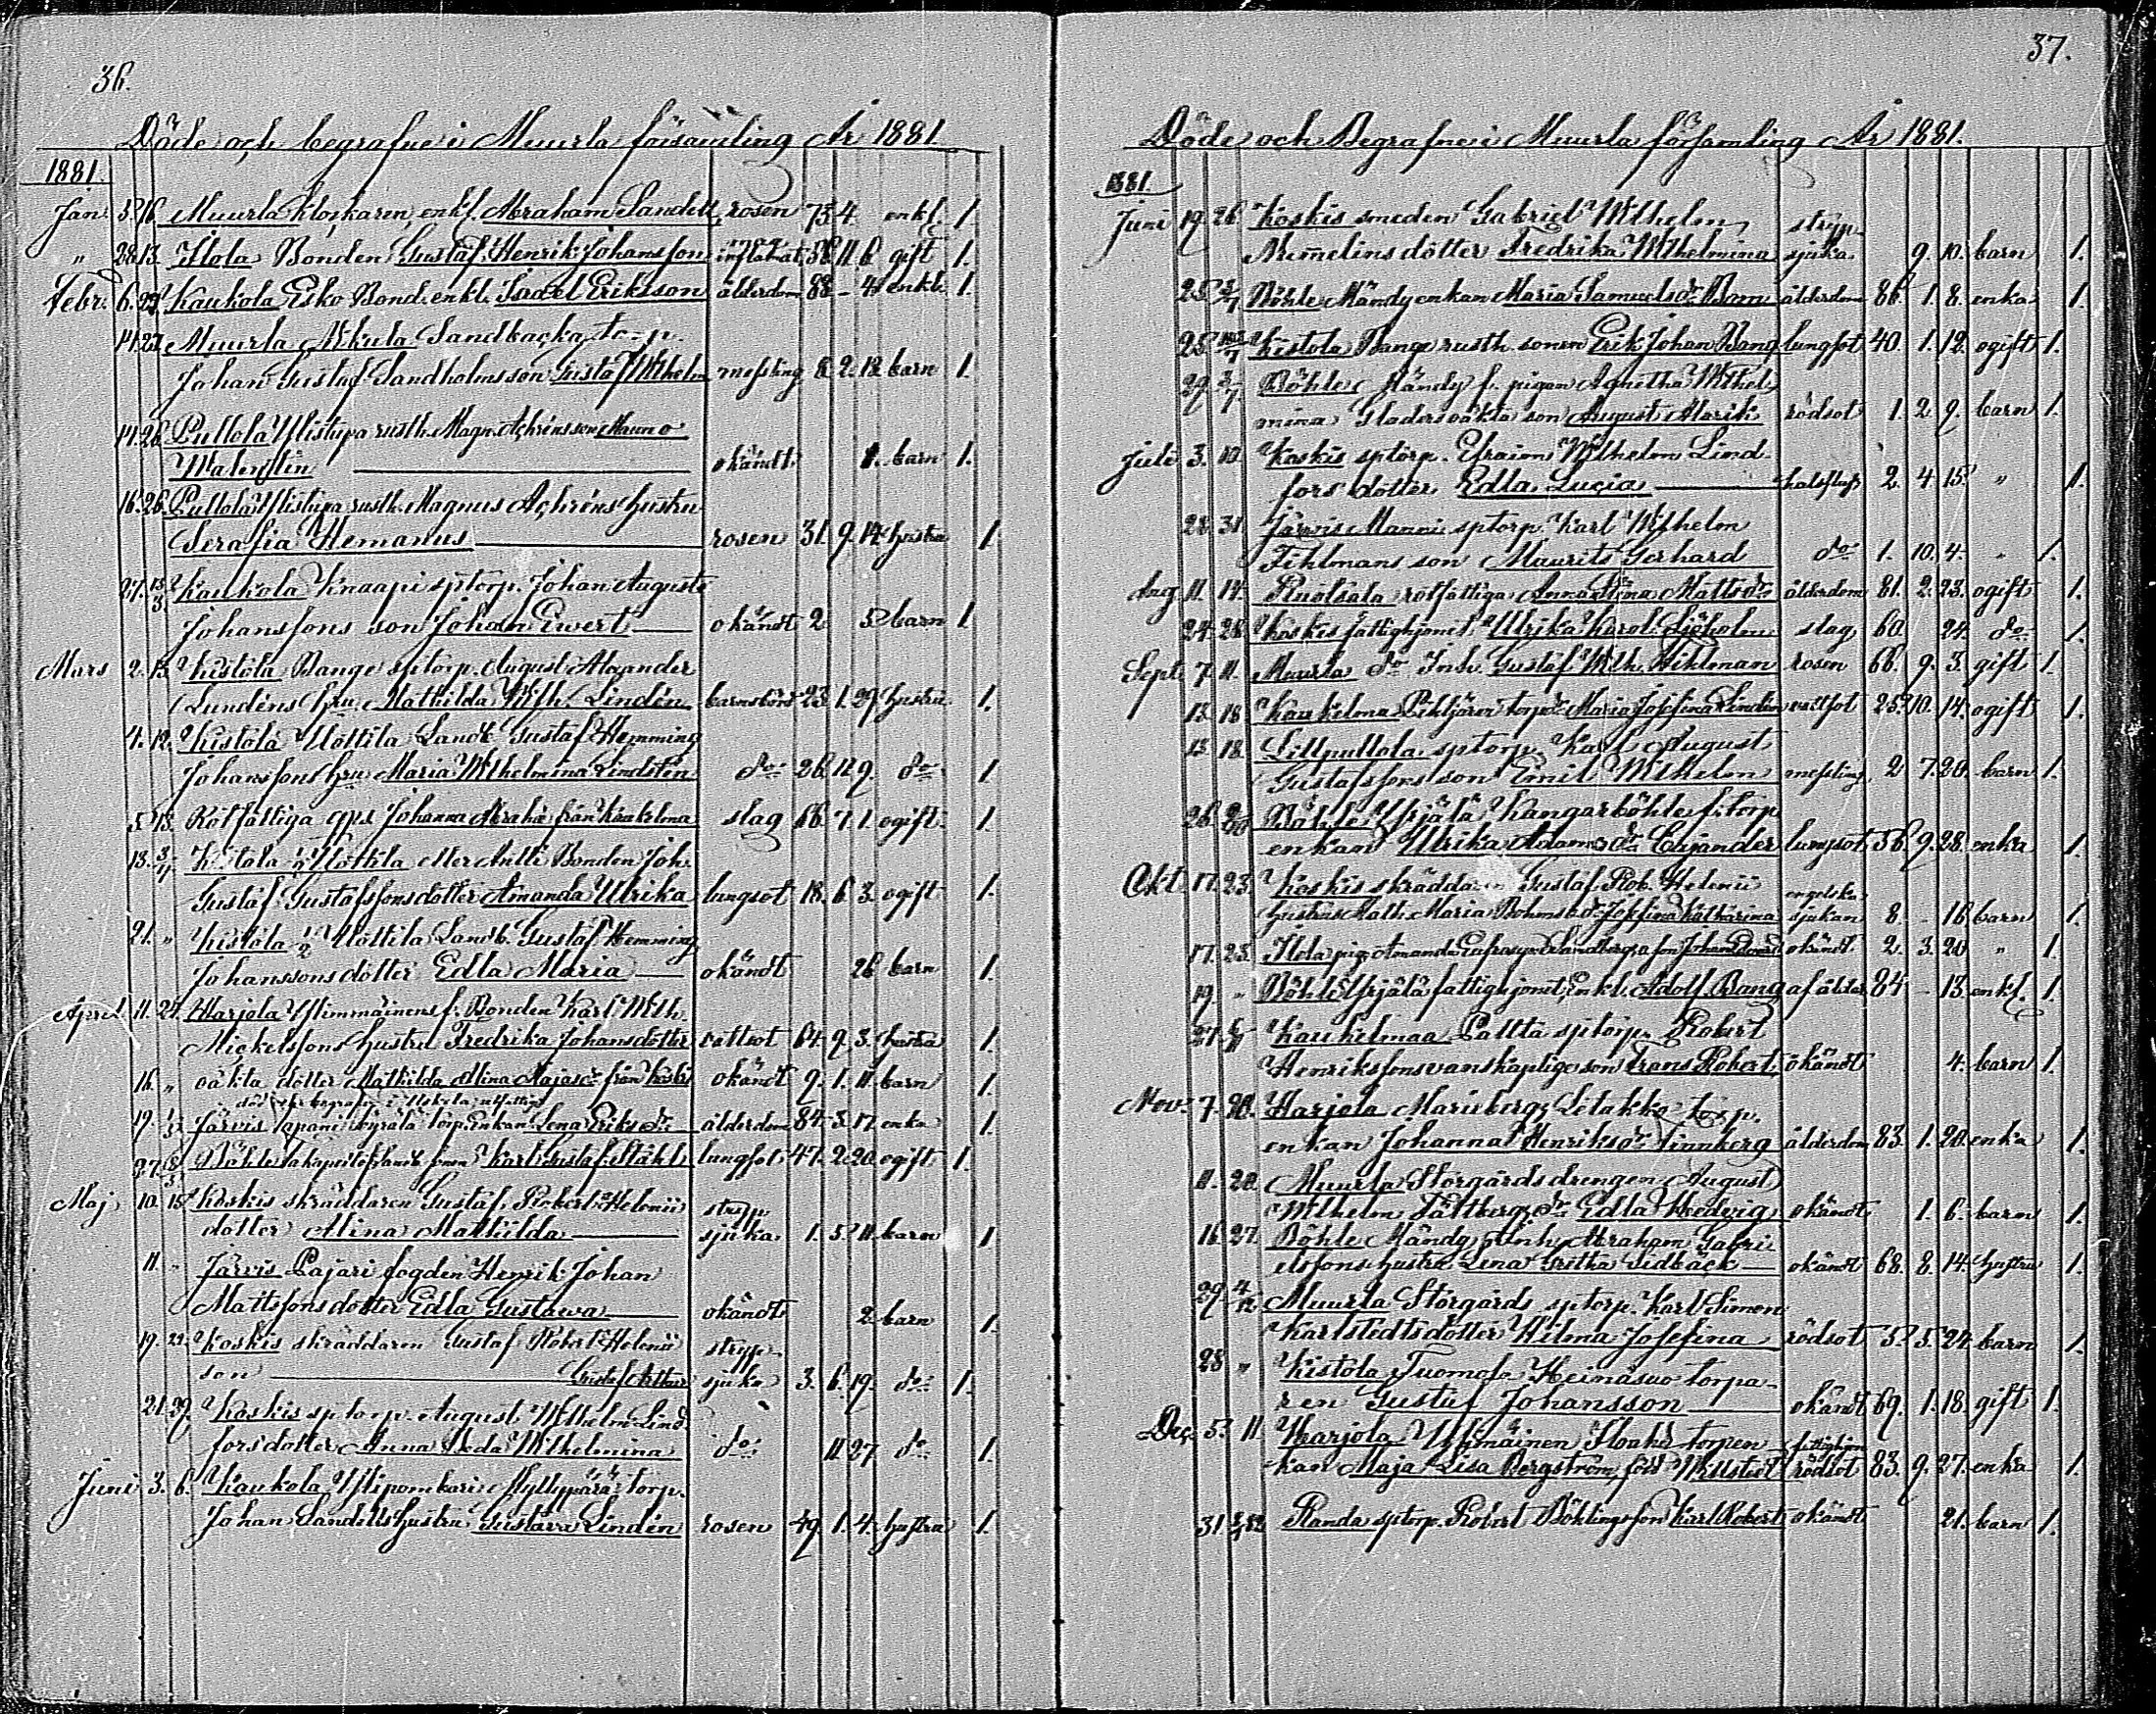 36.
Döde och begrafne i Muurla församling År 1881
1881.
Jan. 3. 16. Muurla klockaren, enkl. Abraham Sandell rosen 75 4 enkl. 1.
" 28 13. Ilola Bonden Gustaf Henrik Johansson inflamat. 38 11. 6 gift 1.
Febr. 6. 27. Kaukola Esko Bond. enkl. Israel Eriksson ålderdom 88 - 4. enkl. 1.
14. 27. Muurla Sandbacka torp.
Johan Gustaf Sandholms son Gustaf Wilhelm messling 8. 2. 13. barn 1.
14. 26. Pullola Ylistupa rusth. Magn. Achréns son Mauno
okändt 1. barn 1.
16. 26. Pullola Ylistupa rusth. Magnus Achréns hustru
Serafia Hemanus rosen 31. 9. 14. hustru 1.
27. 13/3 Kaukola Knaapi sptorp. Johan August
Johanssons son Johan Ewert okändt 2 5 barn 1
Mars 2. 13. Kistola Bange sptorp. August Alexander
Lundéns hru Mathilda Wilh. Lindén barnsbörd 23. 1. 29. hustru 1.
4. 12. Kistola Uottila Landb. Gustaf Hemming
Johanssons hru Maria Wilhelmina Lindstén do 26. 11. 9. do 1.
5. 13. Rotfattiga Johanna Abrahad. från Kaukelma slag 66. 7. 1. ogift 1.
13. 3/4 Kistola 1/2 Uottila eller Antti Bonden Joh.
Gustaf Gustafssons dotter Amanda Ulrika lungsot 18. 6. 3. ogift 1.
21. " Kistola 1/2 Uottila Landb. Gustaf Hemming
Johanssons dotter Edla Maria okändt 26 barn 1.
April 11. 24. Harjola Ylimmäinen f. Bonden Karl Wilh.
Mickelssons hustru Fredrika Johansdotter vattsot 64. 9. 3. hustru 1.
16. " oäkta dotter Mathilda Alina Majasdr från Koski okändt 9. 1. 11. barn 1.
död och begrafven i Uskela
19. 1/5 Järvis Tapani Kyrälä torp. Enkan Lena Eriksdr ålderdom 84. 3. 17. enka 1.
27. 8/5 Böhle landb. sonen Karl Gustaf Ståhl lungsot 47. 2. 20. ogift 1.
Maj 10. 15. Koskis skräddaren Gustaf Robert Helenii stryp
dotter Alina Mathilda sjuka 1. 5. 11. barn 1
11. " Järvis Pajari fogden Henrik Johan
Mattssons dotter Edla Gustawa okändt 2 barn 1.
19. 22. Koskis skräddaren Gustaf Robert Helenii stryp
son Gustaf Arthur sjuka 3. 6. 19. do 1.
21. 29. Koskis sptorp. August Wilhelm Lind
fors dotter Anna Leda Wilhelmina do 11 27 do 1.
Juni 3. 6. Kaukola Ylipomkari Myllyperä torp.
Johan Sandells hustru Gustava Lindén rosen 49. 1. 4. hustru 1.
37.
Döde och Begrafne i Muurla församling År 1881.
1881.
Juni 19. 26. Koskis smeden Gabriel Wilhelm stryp
Nummelins dotter Fredrika Wilhelmina sjuka 9. 10. barn 1.
25. 3/7 Böhle Mändy enkan Maria Samuelsdr Bom ålderdom 86. 1. 8. enka 1.
25. Kistola Bange rusth. sonen Erik Johan Bang lungsot 40. 1. 12. ogift 1.
29. 3/7 Böhle Mändy f. pigan Agnetha Wilhel
mina Gladers oäkta son August Alarik rödsot 1. 2. 9. barn 1.
Juli 3. 10. Koskis sptorp. Efraim Wilhelm Lind
fors dotter Edla Lucia halsfluss 2. 4. 15. " 1.
28. 31. Järvis Manni sptorp. Karl Wilhelm
Fihlmans son Maurits Gerhard do 1. 10. 4. " 1.
Aug. 11. 14. Ruotsala rotfattiga Anna Stina Mattsdr ålderdom 81. 2. 23. ogift 1.
24. 28. Koskis fattighjonet Ulrika Karol. Sjöholm slag 60. 24. do 1.
Sept. 7. 11. Muurla do Inh. Gustaf Wilh. Hihlman rosen 66. 9. 3. gift 1.
13. 18. Kaukelma Pihljärvi torpdr Maria Josefina Lindén vattsot 25. 10. 14. ogift 1.
13. 18. Lillpullola sptorp. Karl August
Gustafssons son Emil Wilhelm messling 2 7. 20. barn 1.
26. 2/10 Böhle Yrjälä Kangarböhle f. torp
enkan Ulrika Adamsdr Cajander lungsot 56. 9. 28. enka 1.
Okt. 17. 23. Koskis skräddaren Gustaf Rob. Helenii engelska
hustrus Math. Maria Bohms dr Josefina Katharina sjukan 8. - 16 barn 1.
17. 23. Ilola pig. Amanda Eufrosyne Sandbergs o. son Johan Edvard okändt 2. 3. 20 " 1.
19. " Böhle Yrjälä fattighjonet, Enkl. Adolf Bang af ålder 84 - 13. enkl. 1.
27. 6/11 Kaukelmaa Paltta sptorp. Robert
Henrikssons vanskaplige son Frans Robert okändt 4. barn 1.
Nov. 7. 20. Harjola Marieberg, Letakko torp.
enkan Johanna Henriksdr Finnberg ålderdom 83. 1. 20. enka 1.
11. 20. Muurla Storgårds drengen August
Wilhelm Fältbergs dr Edla Hedvig okändt 1. 6. barn 1.
16. 27. Böhle Mändy, Inh. Abraham Gabri
elssons hustru Lena Gretha Lidbäck okändt 68. 8. 14. hustru 1.
29. 4/12 Muurla Storgårds sptorp. Karl Simon
Karlstedts dotter Hilma Josefina rödsot 5. 5. 24. barn 1.
28 " Kistola Tuomola Heinäsuo torpa-
ren Gustaf Johansson okändt 69. 1. 18. gift 1.
Dec. 5. 11. Harjola Ylimäinen torpen fattighjon
kan Maja Lisa Bergström född Willstedt rödsot 83. 9. 27. enka 1.
31. Randa sptorp. Robert Böhlings son Karl Robert okändt 21. barn 1.